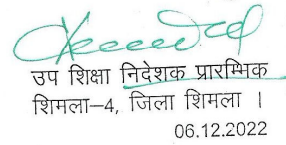 उप शिक्षा निदेशक प्रारम्भिक
शिमला–4, जिला शिमला ।
06.12.2022